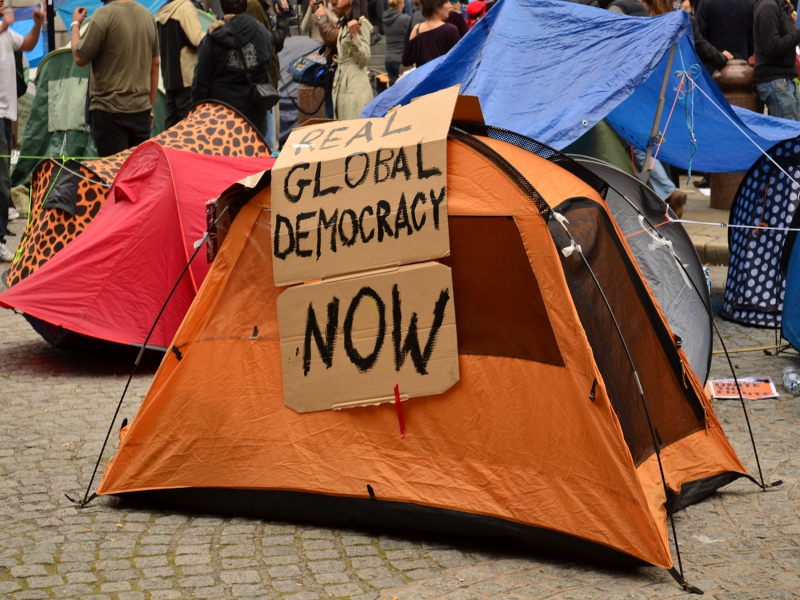 REAL
GLOBAL
DEMOCRACY
NOW